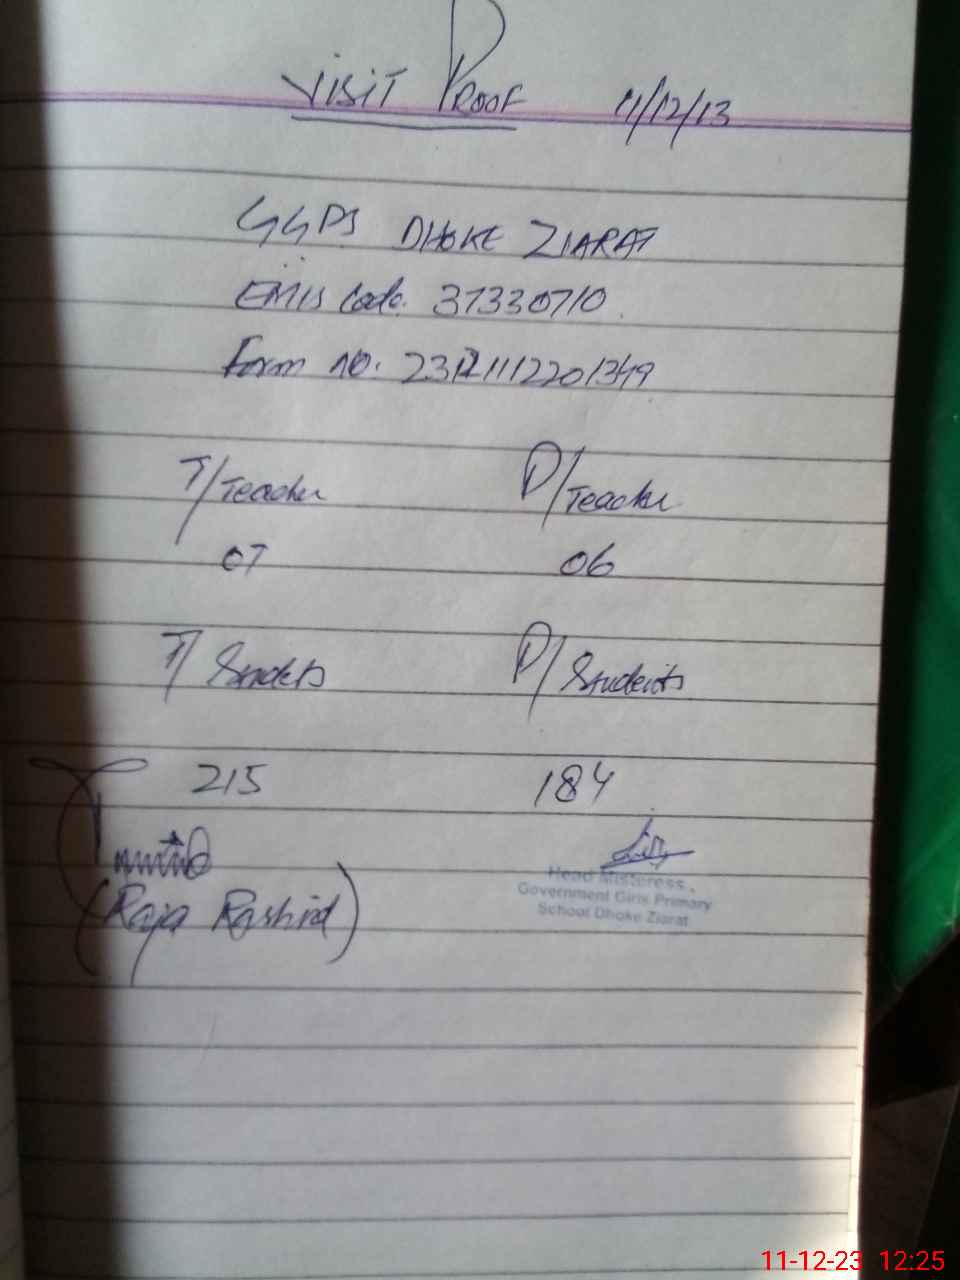 VISIT PROOF 11/12/13
GGPS DHOKE ZIARAT
EMIS Code. 37330710.
Form no.
T/Teacher P/Teacher
07 06
T/Students P/Students
215 184
(Raja Rashid)
Head Misteress,
Government Girls Primary
School Dhoke Ziarat
11-12-23 12:25